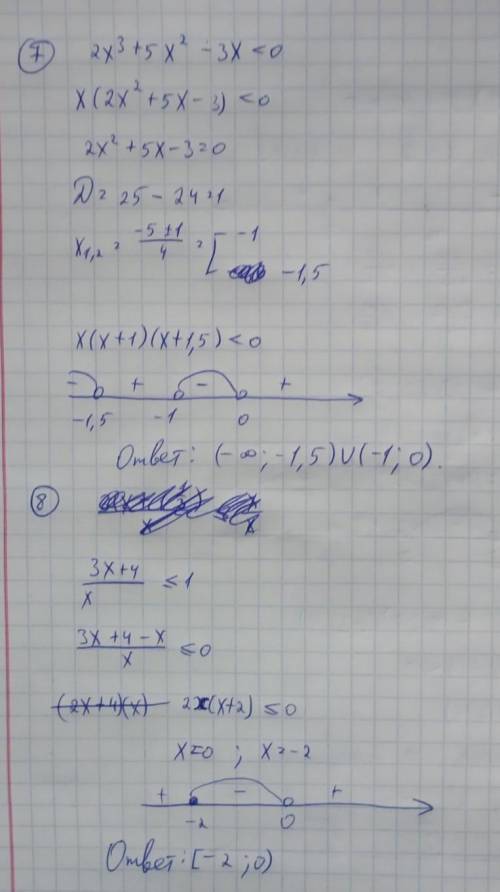 7 2x³ + 5x² - 3x < 0
x(2x² + 5x - 3) < 0
2x² + 5x - 3 = 0
D = 25 - 24 = 1
x₁,₂ = (-5 ± 1)/4 = [ -1
-1,5
x(x+1)(x+1,5) < 0
- + - +
-1,5 -1 0
Ответ: (-∞; -1,5) ∪ (-1; 0).
8
(3x+4)/x ≤ 1
(3x+4-x)/x ≤ 0
(2x+4)(x) 2x(x+2) ≤ 0
x=0 ; x=-2
+ - +
-2 0
Ответ: [-2; 0)